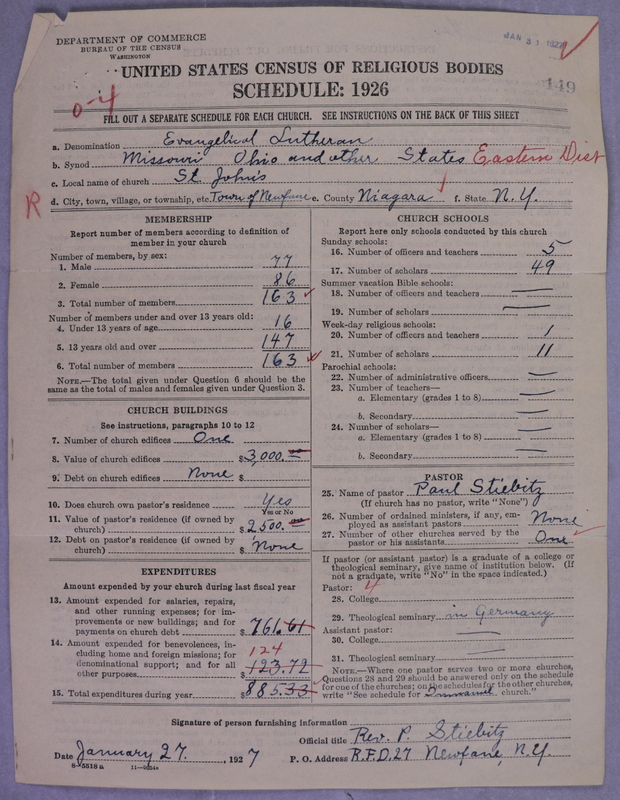 DEPARTMENT OF COMMERCE
BUREAU OF THE CENSUS
WASHINGTON
JAN 31 1927
149
UNITED STATES CENSUS OF RELIGIOUS BODIES
SCHEDULE: 1926
0-4
FILL OUT A SEPARATE SCHEDULE FOR EACH CHURCH. SEE INSTRUCTIONS ON THE BACK OF THIS SHEET
a. Denomination Evangelical Lutheran
b. Synod Missouri Ohio and other States Eastern Dist
c. Local name of church St. John's
R d. City, town, village, or township, etc. Town of Newfane e. County Niagara f. State N.Y.
MEMBERSHIP
Report number of members according to definition of
member in your church
Number of members, by sex:
1. Male 77
2. Female 86
3. Total number of members 163
Number of members under and over 13 years old:
4. Under 13 years of age 16
5. 13 years old and over 147
6. Total number of members 163
NOTE.—The total given under Question 6 should be the
same as the total of males and females given under Question 3.
CHURCH BUILDINGS
See instructions, paragraphs 10 to 12
7. Number of church edifices One
8. Value of church edifices $3,000.00
9. Debt on church edifices None $
10. Does church own pastor's residence Yes
Yes or No
11. Value of pastor's residence (if owned by
church) $2500.00
12. Debt on pastor's residence (if owned by
church) $ None
EXPENDITURES
Amount expended by your church during last fiscal year
13. Amount expended for salaries, repairs,
and other running expenses; for im-
provements or new buildings; and for
payments on church debt $761.61
14. Amount expended for benevolences, in-
cluding home and foreign missions; for
denominational support; and for all
other purposes 124 $123.72
15. Total expenditures during year $885.33
CHURCH SCHOOLS
Report here only schools conducted by this church
Sunday schools:
16. Number of officers and teachers 5
17. Number of scholars 49
Summer vacation Bible schools:
18. Number of officers and teachers —
19. Number of scholars —
Week-day religious schools:
20. Number of officers and teachers 1
21. Number of scholars 11
Parochial schools:
22. Number of administrative officers —
23. Number of teachers—
a. Elementary (grades 1 to 8) —
b. Secondary —
24. Number of scholars—
a. Elementary (grades 1 to 8) —
b. Secondary —
PASTOR
25. Name of pastor Paul Stiebitz
(If church has no pastor, write "None")
26. Number of ordained ministers, if any, em-
ployed as assistant pastors None
27. Number of other churches served by the
pastor or his assistants One
If pastor (or assistant pastor) is a graduate of a college or
theological seminary, give name of institution below. (If
not a graduate, write "No" in the space indicated.)
Pastor: 4
28. College
29. Theological seminary in Germany
Assistant pastor:
30. College —
31. Theological seminary —
NOTE.—Where one pastor serves two or more churches,
Questions 28 and 29 should be answered only on the schedule
for one of the churches; on the schedules for the other churches,
write "See schedule for Immanuel church."
Signature of person furnishing information
Official title Rev. P. Stiebitz
Date January 27, 1927 P. O. Address R.F.D. 27 Newfane N.Y.
8-5518 a